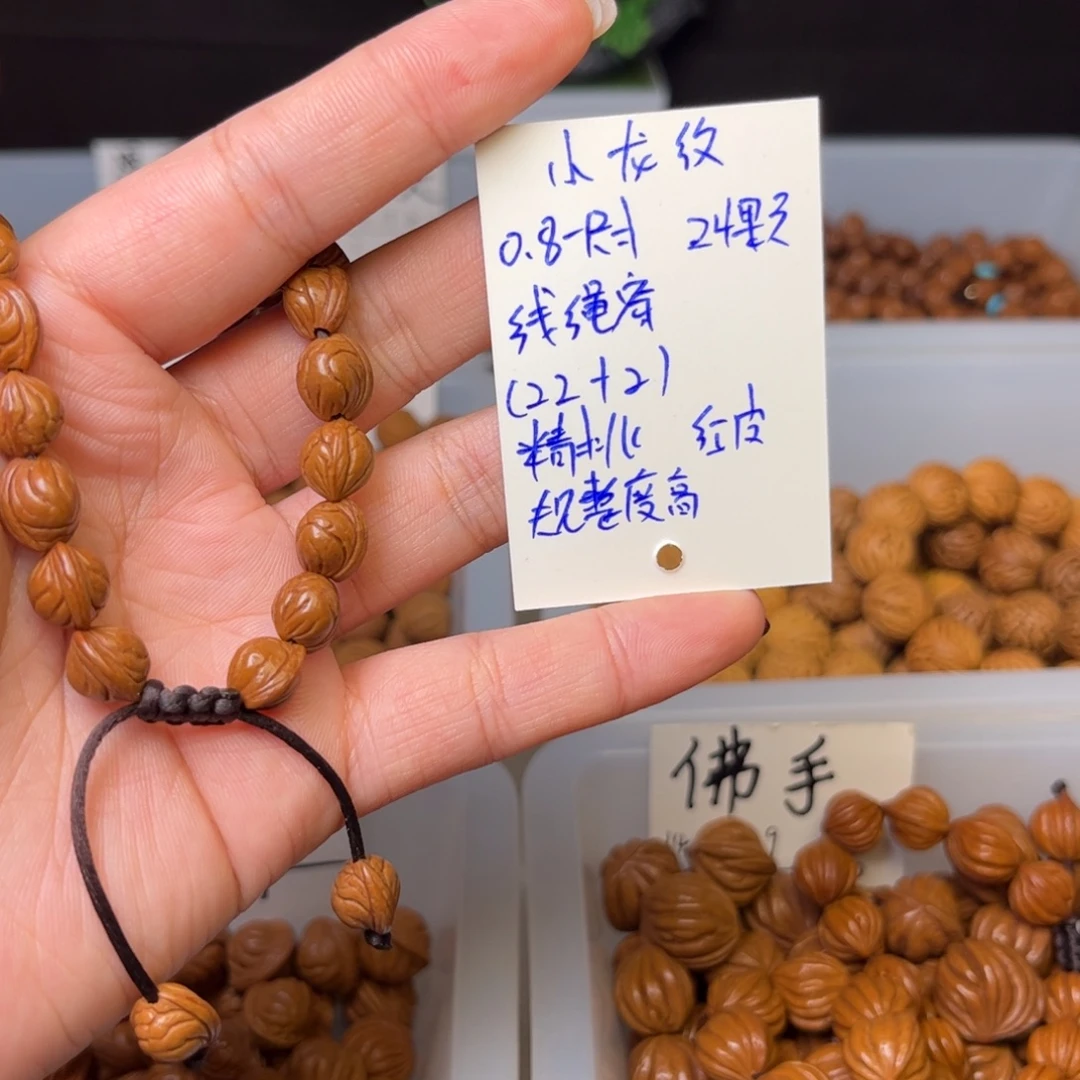 小龙纹
0.8-尺寸 24颗
线绳穿
(22+2)
精挑 红皮
规整度高
佛手